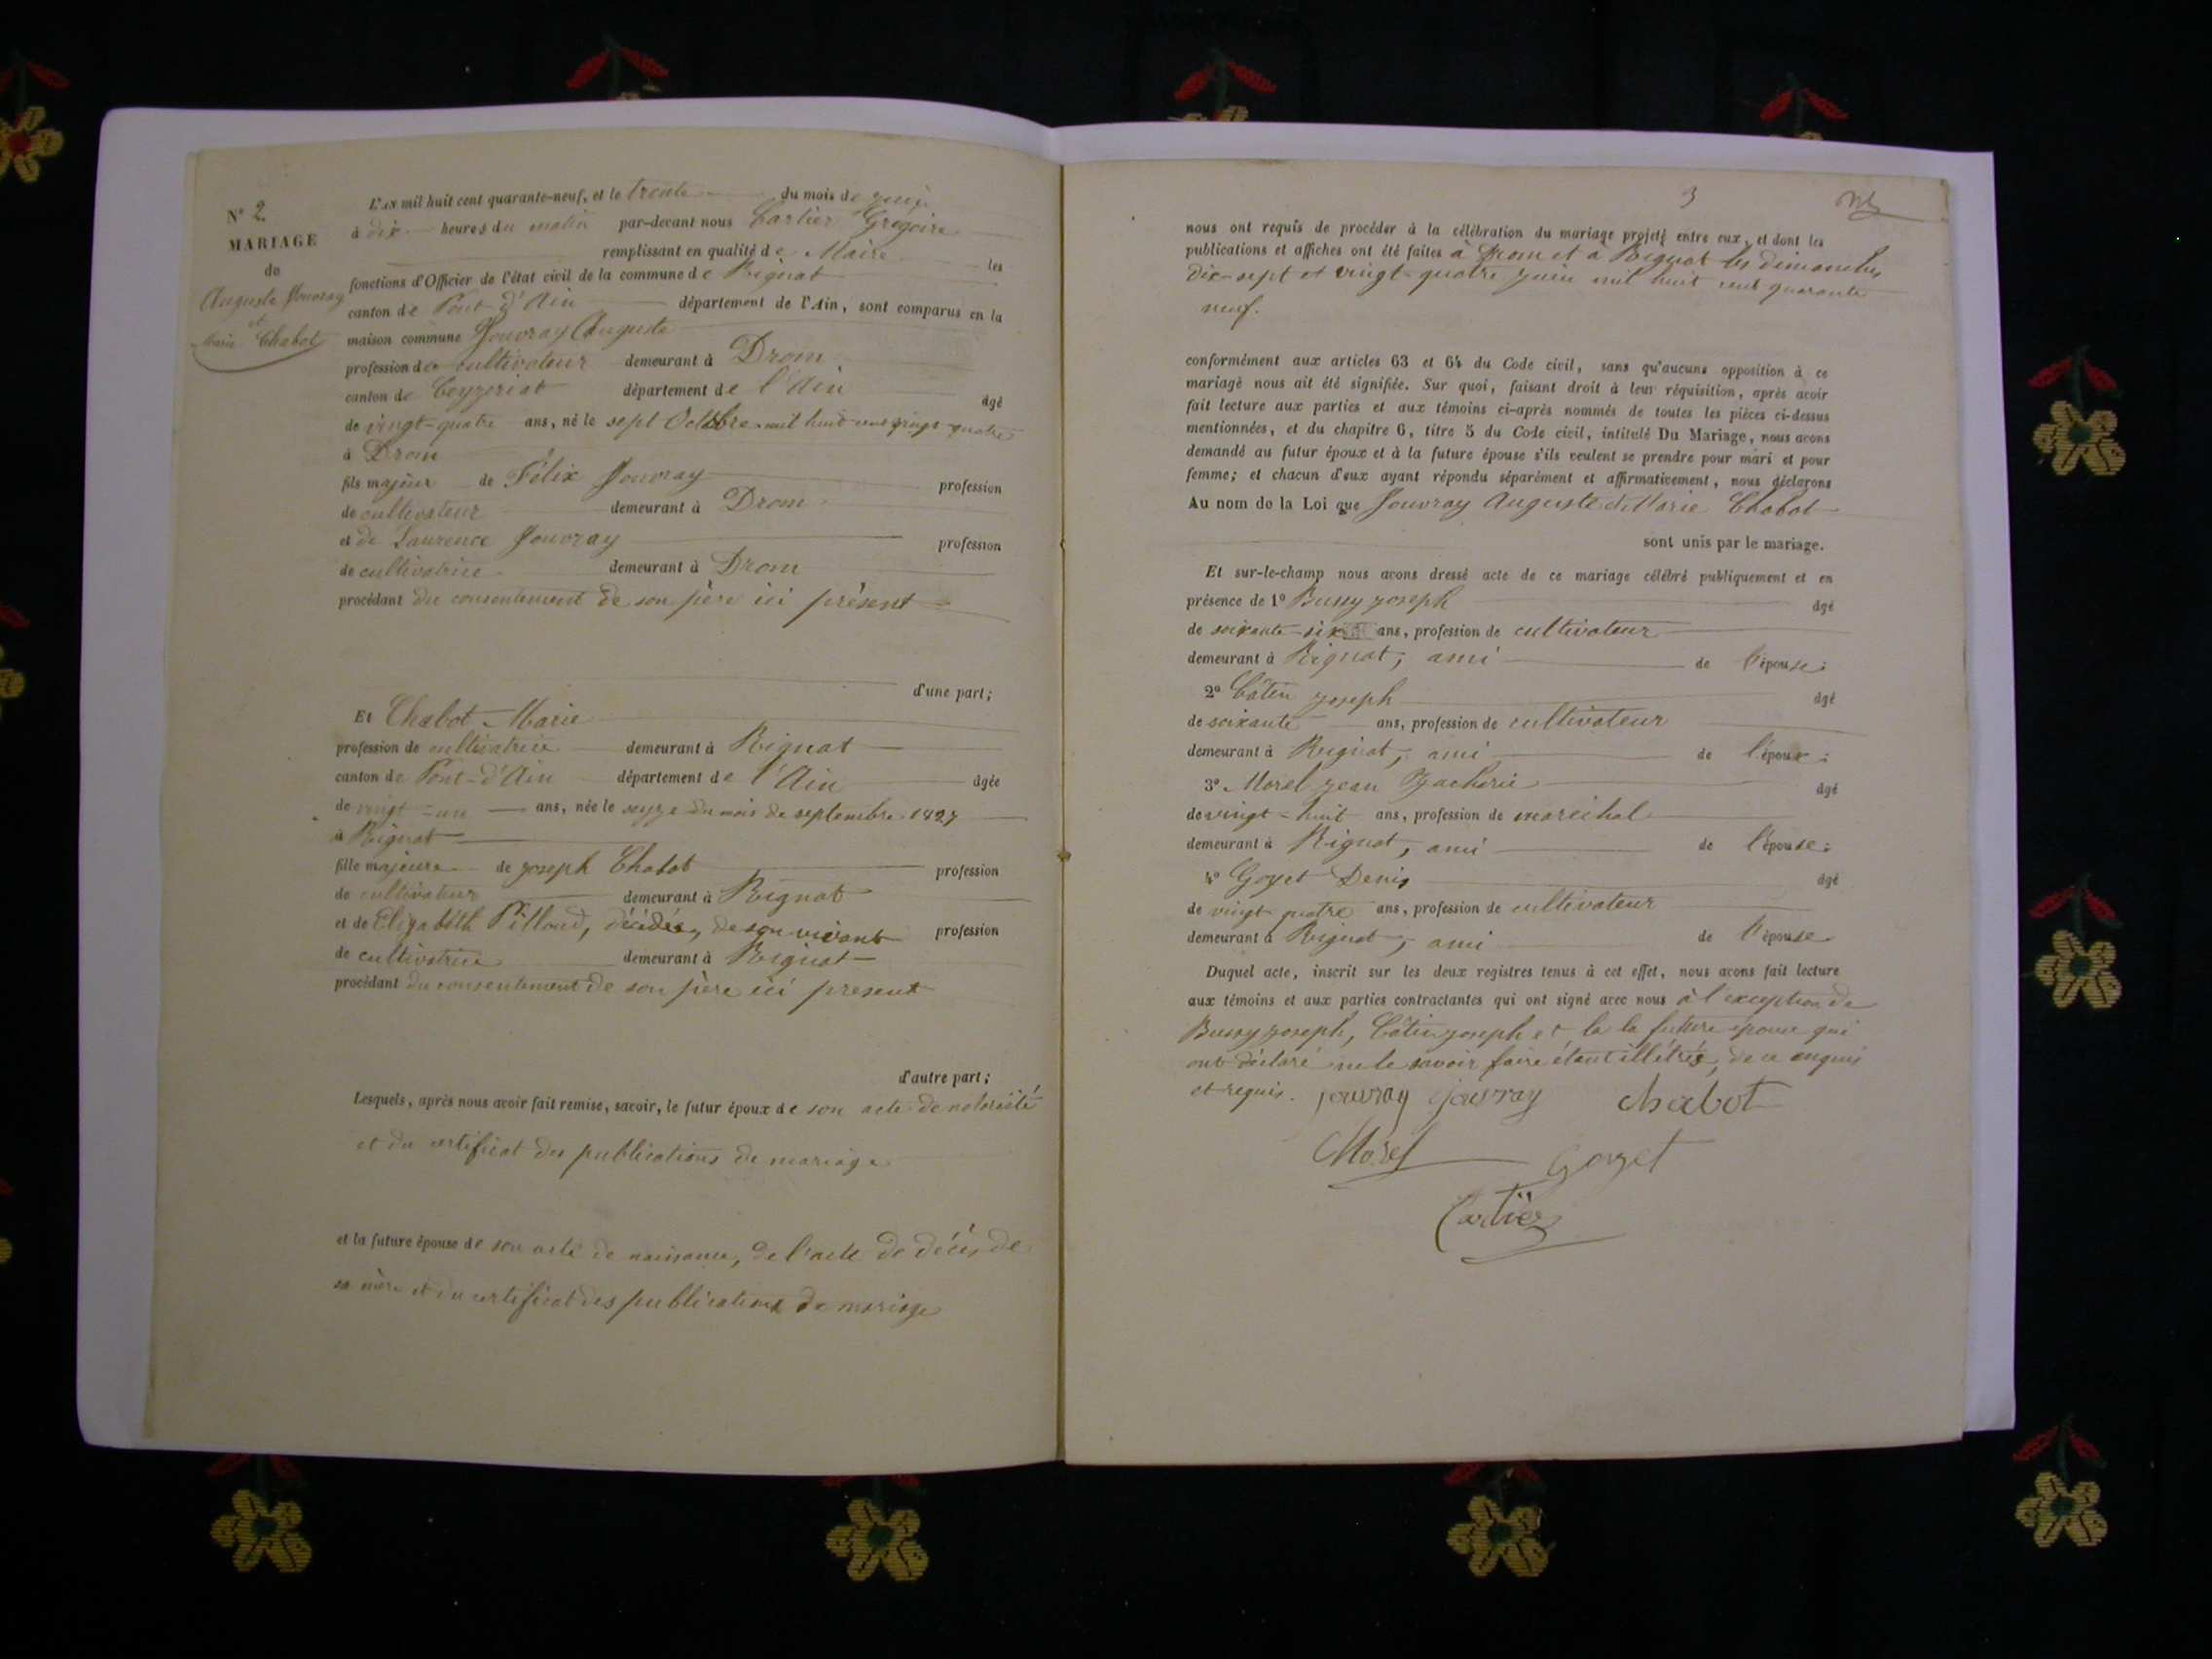 N° 2
MARIAGE
de
Auguste Jouvray
et
Marie Chabot
L'AN mil huit cent quarante-neuf, et le trente du mois de juin
à dix heures du matin par-devant nous Cartier Grégoire
remplissant en qualité de Maire les
fonctions d'Officier de l'état civil de la commune de Rignat
canton de Pont-d'Ain département de l'Ain, sont comparus en la
maison commune Jouvray Auguste
profession de cultivateur demeurant à Drom
canton de Ceyzeriat département de l'Ain âgé
de vingt-quatre ans, né le sept Octobre mil huit cent vingt-quatre
à Drom
fils majeur de Félix Jouvray profession
de cultivateur demeurant à Drom
et de Laurence Jouvray profession
de cultivatrice demeurant à Drom
procédant du consentement de son père ici présent
d'une part;
Et Chabot Marie
profession de cultivatrice demeurant à Rignat
canton de Pont-d'Ain département de l'Ain âgée
de vingt-un ans, née le seyze du mois de septembre 1827
à Rignat
fille majeure de joseph Chabot profession
de cultivateur demeurant à Rignat
et de Elizabeth Pilloud, décédée, de son vivant profession
de cultivatrice demeurant à Rignat
procédant du consentement de son père ici présent
d'autre part;
Lesquels, après nous avoir fait remise, savoir, le futur époux de son acte de notoriété
et du certificat des publications de mariage
et la future épouse de son acte de naissance, de l'acte de décès de
sa mère et du certificat des publications de mariage
3
nous ont requis de procéder à la célébration du mariage projeté entre eux, et dont les
publications et affiches ont été faites à Drom et à Rignat les dimanches
dix-sept et vingt-quatre juin mil huit cent quarante
neuf.
conformément aux articles 63 et 64 du Code civil, sans qu'aucune opposition à ce
mariage nous ait été signifiée. Sur quoi, faisant droit à leur réquisition, après avoir
fait lecture aux parties et aux témoins ci-après nommés de toutes les pièces ci-dessus
mentionnées, et du chapitre 6, titre 5 du Code civil, intitulé Du Mariage, nous avons
demandé au futur époux et à la future épouse s'ils veulent se prendre pour mari et pour
femme; et chacun d'eux ayant répondu séparément et affirmativement, nous déclarons
Au nom de la Loi que Jouvray Auguste et Marie Chabot
sont unis par le mariage.
Et sur-le-champ nous avons dressé acte de ce mariage célébré publiquement et en
présence de 1° Bussy joseph âgé
de soixante-six ans, profession de cultivateur
demeurant à Rignat, ami de l'épouse;
2° Câtin joseph âgé
de soixante ans, profession de cultivateur
demeurant à Rignat, ami de l'époux;
3° Morel jean Zacharie âgé
de vingt-huit ans, profession de maréchal
demeurant à Rignat, ami de l'épouse;
4° Goyet Denis âgé
de vingt-quatre ans, profession de cultivateur
demeurant à Rignat, ami de l'épouse
Duquel acte, inscrit sur les deux registres tenus à cet effet, nous avons fait lecture
aux témoins et aux parties contractantes qui ont signé avec nous à l'exception de
Bussy joseph, Câtin joseph et la la future épouse qui
ont déclaré ne le savoir faire étant illétrés, de ce enquis
et requis. jouvray jouvray chabot
Morel Goyet
Cartier